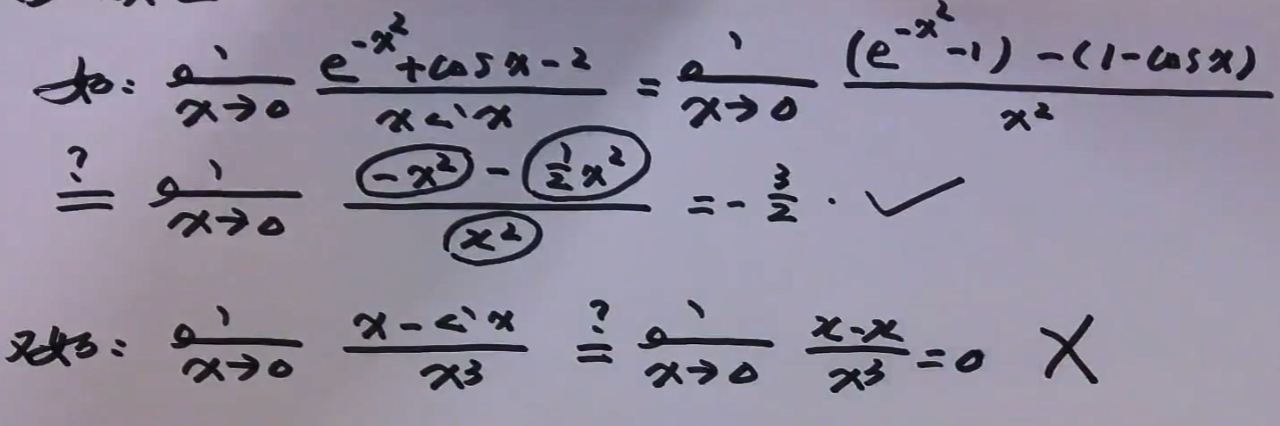 如: lim x→0 (e^{-x^2}+cos x-2)/(x sin x) = lim x→0 ((e^{-x^2}-1)-(1-cos x))/x^2
?= lim x→0 (-x^2-½x^2)/x^2 = -3/2. ✓
又如: lim x→0 (x-sin x)/x^3 ?= lim x→0 (x-x)/x^3 = 0 ✗